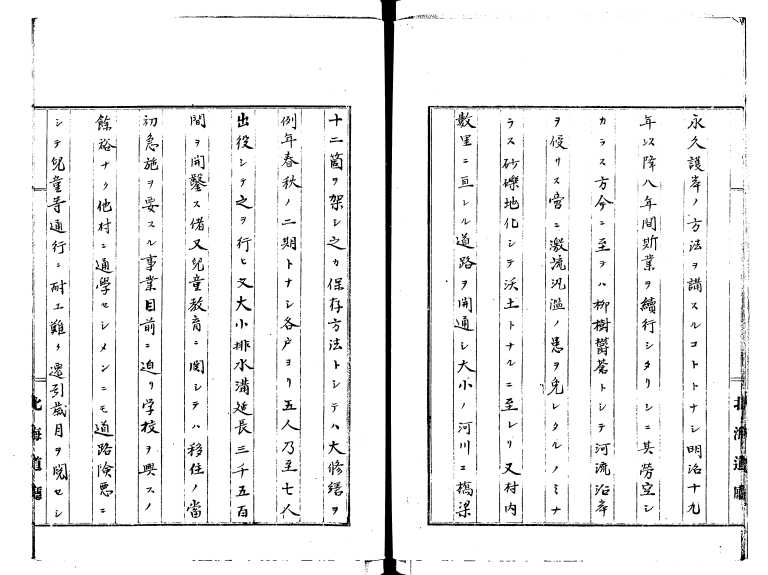 永久護岸ノ方法ヲ講スルコトトナシ明治十九
年以降八年間斯業ヲ續行シタリシニ其勞空シ
カラス方今ニ至テハ柳樹欝蒼トシテ河流沿岸
ヲ侵サス啻ニ激流汎濫ノ患ヲ免レタルノミナ
ラス砂礫地化シテ沃土トナルニ至レリ又村内
數里ニ亘レル道路ヲ開通シ大小ノ河川ニ橋梁
北海道廳
十二箇ヲ架シ之カ保存方法トシテハ大修繕ヲ
例年春秋ノ二期トナシ各戶ヨリ五人乃至七人
出役シテ之ヲ行ヒ又大小排水溝延長三千五百
間ヲ開鑿ス偖又兒童教育ニ関シテハ移住ノ當
初急施ヲ要スル事業目前ニ迫リ学校ヲ興スノ
餘裕ナク他村ニ通學セシメンニモ道路険悪ニ
シテ兒童等通行ニ耐エ難ク遷引歳月ヲ閲セシ
北海道廳